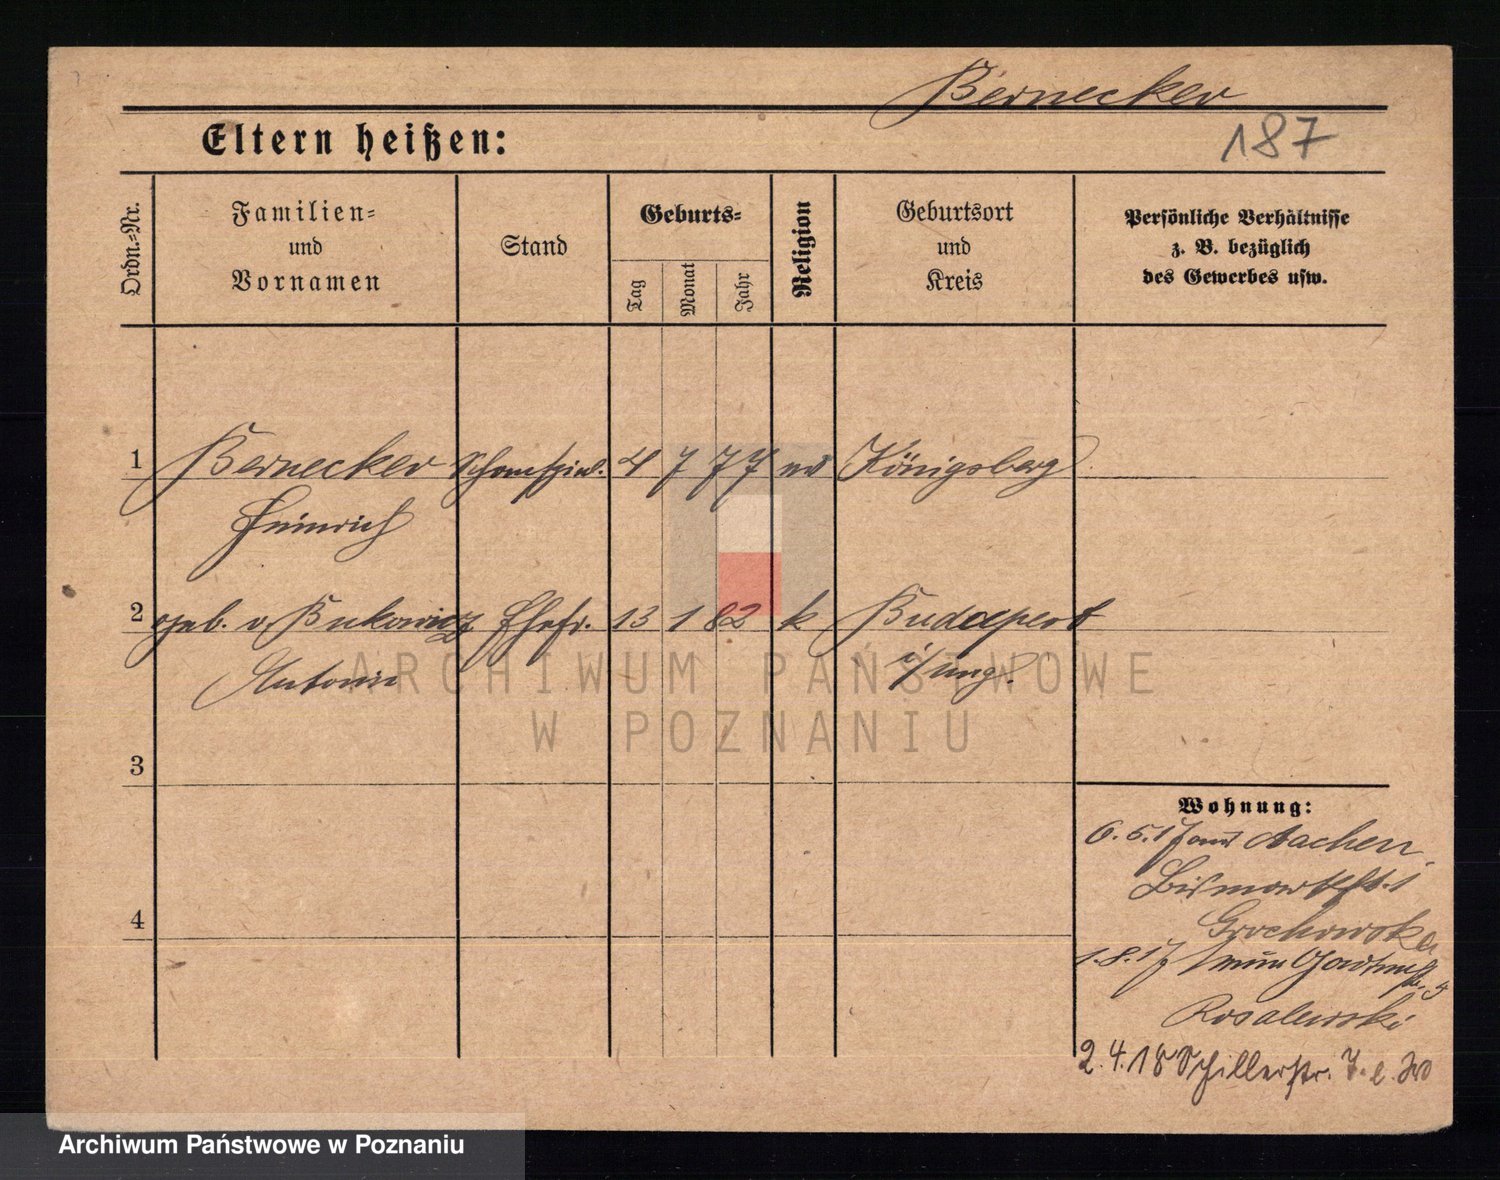 Bernecker
Eltern heißen:
187
Ordn.=Nr.
Familien=
und
Vornamen
Stand
Geburts=
Tag
Monat
Jahr
Religion
Geburtsort
und
Kreis
Persönliche Verhältnisse
z. B. bezüglich
des Gewerbes usw.
1 Bernecker Schauspiel. 4 7 77 ev Königsberg
Heinrich
2 geb. v. Bukowicz Ehefr. 13 1 82 k Budapest
Antonie i/ung.
ARCHIWUM PAŃSTWOWE
W POZNANIU
3
Wohnung:
6.5.17 aus Aachen
Bismarckstr. 1
Grochowska
4
1.8.17 Gartenstr.
Rosalewski
2.4.18 Schillerstr. 7.
Archiwum Państwowe w Poznaniu